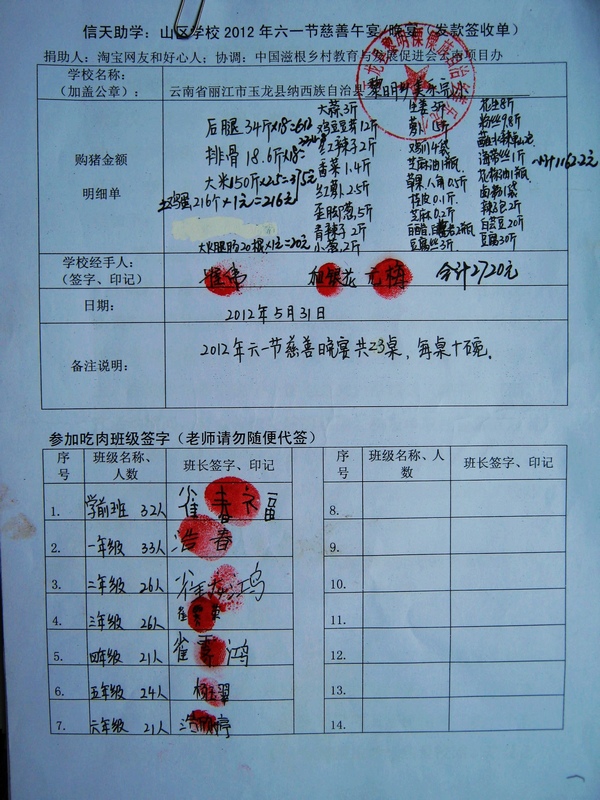 信天助学：山区学校2012年六一节慈善午宴/晚宴（发款签收单）
捐助人：淘宝网友和好心人；协调：中国滋根乡村教育与发展促进会云南项目办
学校名称：
（加盖公章）：
云南省丽江市玉龙县纳西族自治县黎明
购猪金额
明细单
后腿34斤×18=612
排骨18.6斤×18=
大米150斤×2.5=375元
土鸡蛋216个×1元=216元
火腿肠20根×1元=20元
大蒜3斤
鸡豆芽12斤
香菜1.4斤
红萝卜2.5斤
青辣子2斤
小葱2斤
生姜3斤
鸡精4袋
芝麻油1瓶
草果八角0.5斤
桂皮0.1斤
芝麻0.2斤
豆腐丝3斤
花生8斤
粉丝9.8斤
海带丝1斤
花椒油1瓶
卤粉1袋
白芸豆20斤
豆腐30斤
小计1162.2元
学校经手人：
（签字、印记）
合计2720元
日期：
2012年5月31日
备注说明：
2012年六一节慈善晚宴共23桌，每桌十碗。
参加吃肉班级签字（老师请勿随便代签）
序号 班级名称、人数 班长签字、印记 序号 班级名称、人数 班长签字、印记
1. 学前班 32人 雀春福 8.
2. 一年级 33人 浩春 9.
3. 二年级 26人 10.
4. 三年级 26人 11.
5. 四年级 21人 雀雪鸿 12.
6. 五年级 24人 杨玉翠 13.
7. 六年级 21人 14.